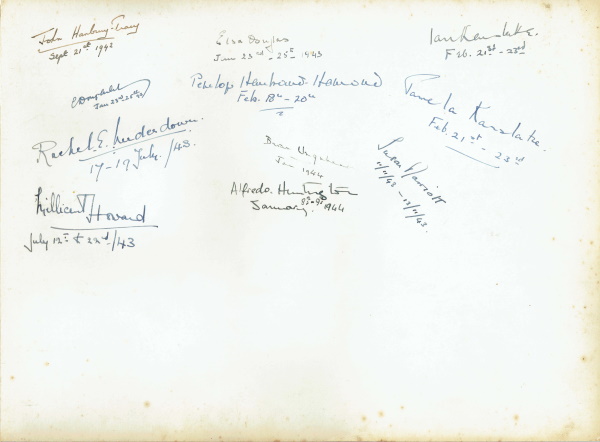 John Hanbury-Tracy
Sept 21st 1942
Elsa Douglas
June 23rd - 25th 1943
Ian Karslake.
Feb. 21st - 23rd
Jan 23rd 25th
Penelope Hanbrand. Hammond
Feb. 18th - 20th
Pamela Karslake.
Feb. 21st - 23rd
Rachel E. Luderdown.
17-19 July. /43.
Jan 1944
Susan Marriott
11/11/43 - 13/11/43.
Alfredo. Huntington
January. 8th-9th 1944
Millicent Howard
July 12th to 22nd/43